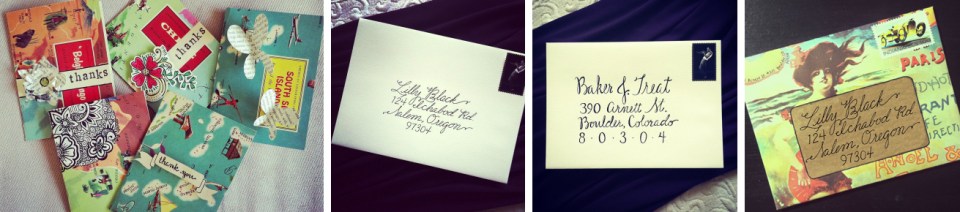 "Belg
thanks
CH
thanks
SOUTH S
ISLAN
thank you
Lilly Black
124 Ichabod Rd
Salem, Oregon
97304
Baker & Treat
390 Arnett St.
Boulder, Colorado
8·0·3·0·4
PARIS
Lilly Black
124 Ichabod Rd
Salem, Oregon
97304